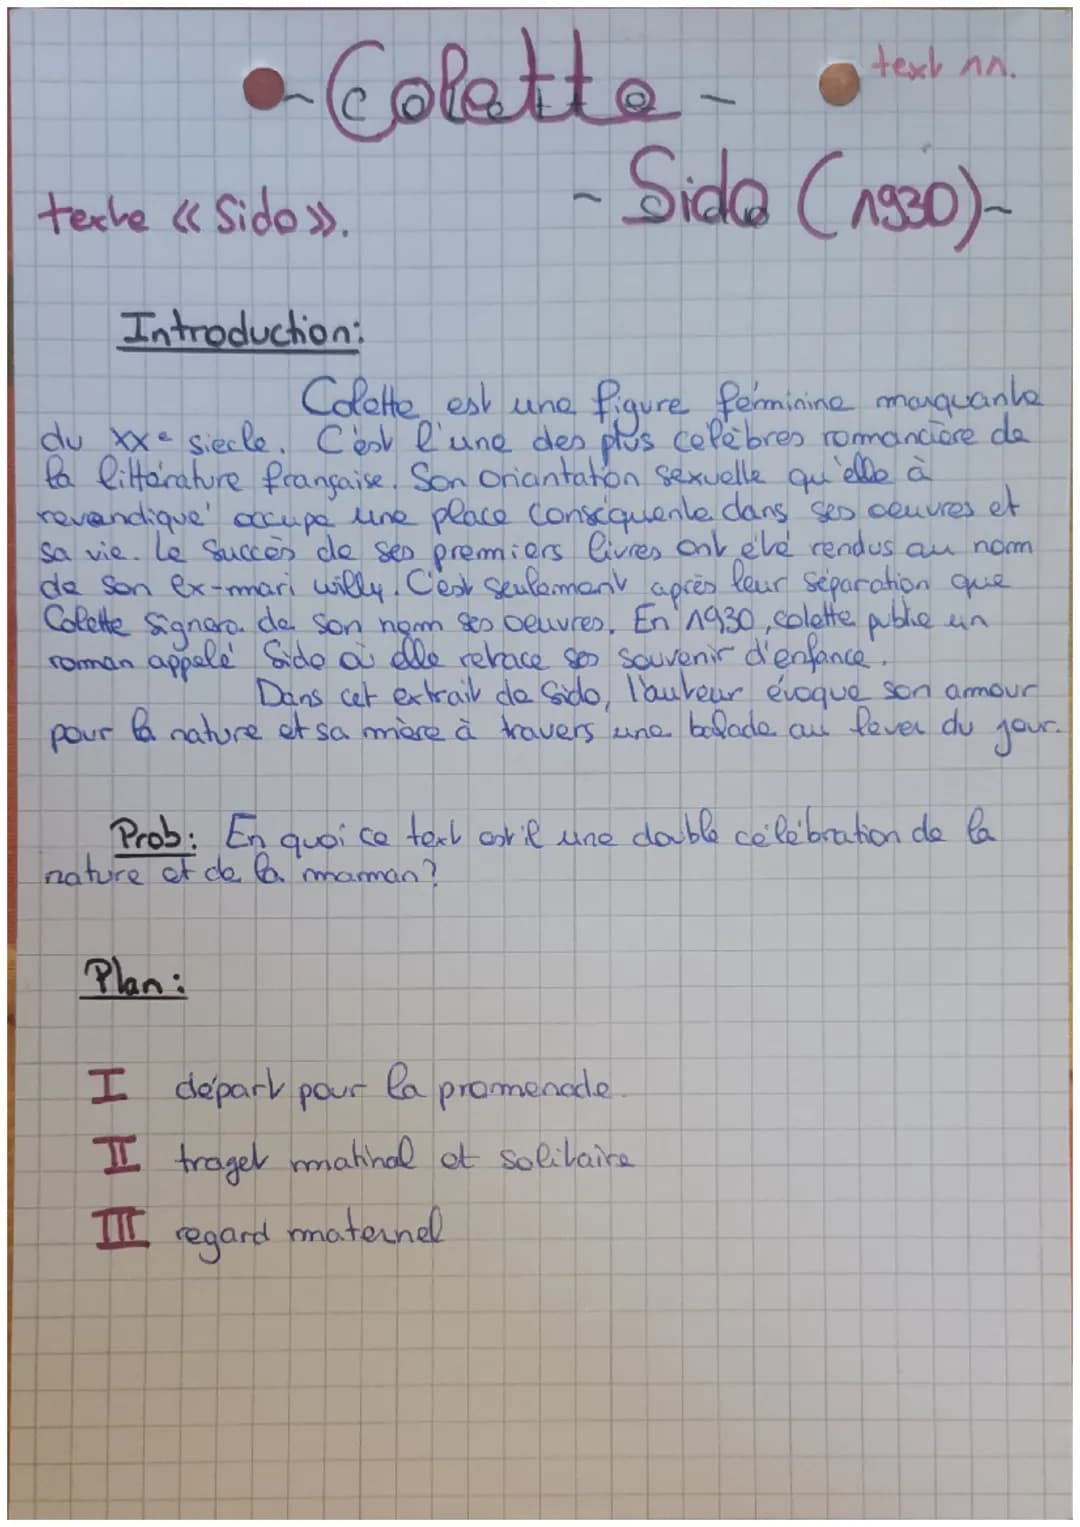 - Colette -
text nn.
- Sido (1930) -
texte « Sido ».
Introduction:
Colette est une figure féminine marquante
du XXe siecle. C'est l'une des plus celèbres romancière de
la littérature française. Son orientation sexuelle qu'elle à
revendiqué occupe une place conséquente dans ses oeuvres et
sa vie. Le succès de ses premiers livres ont été rendus au nom
de son ex-mari willy. C'est seulement après leur séparation que
Colette signera de son nom ses oeuvres. En 1930, colette publie un
roman appelé Sido où elle retrace ses souvenir d'enfance.
Dans cet extrait de Sido, l'auteur évoque son amour
pour la nature et sa mère à travers une balade au lever du jour.
Prob: En quoi ce text est il une double célébration de la
nature et de la maman?
Plan:
I départ pour la promenade.
II traget matinal et solitaire
III regard maternel